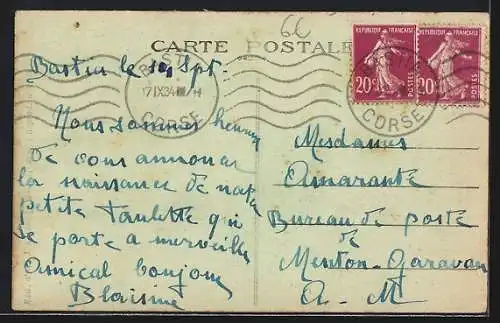 6c
CARTE POSTALE
REPUBLIQUE FRANÇAISE
20c
POSTES
REPUBLIQUE FRANÇAISE
20c
POSTES
BASTIA
17 IX 34
CORSE
CORSE
Bastia le Spt.
Nous sommes heureux
de vous annoncer
la naissance de notre
petite Paulette qui
se porte a merveille
Amical bonjour
Blaisine
Mesdames
Amarante
Bureau de poste
de
Menton-Garavan
A-M